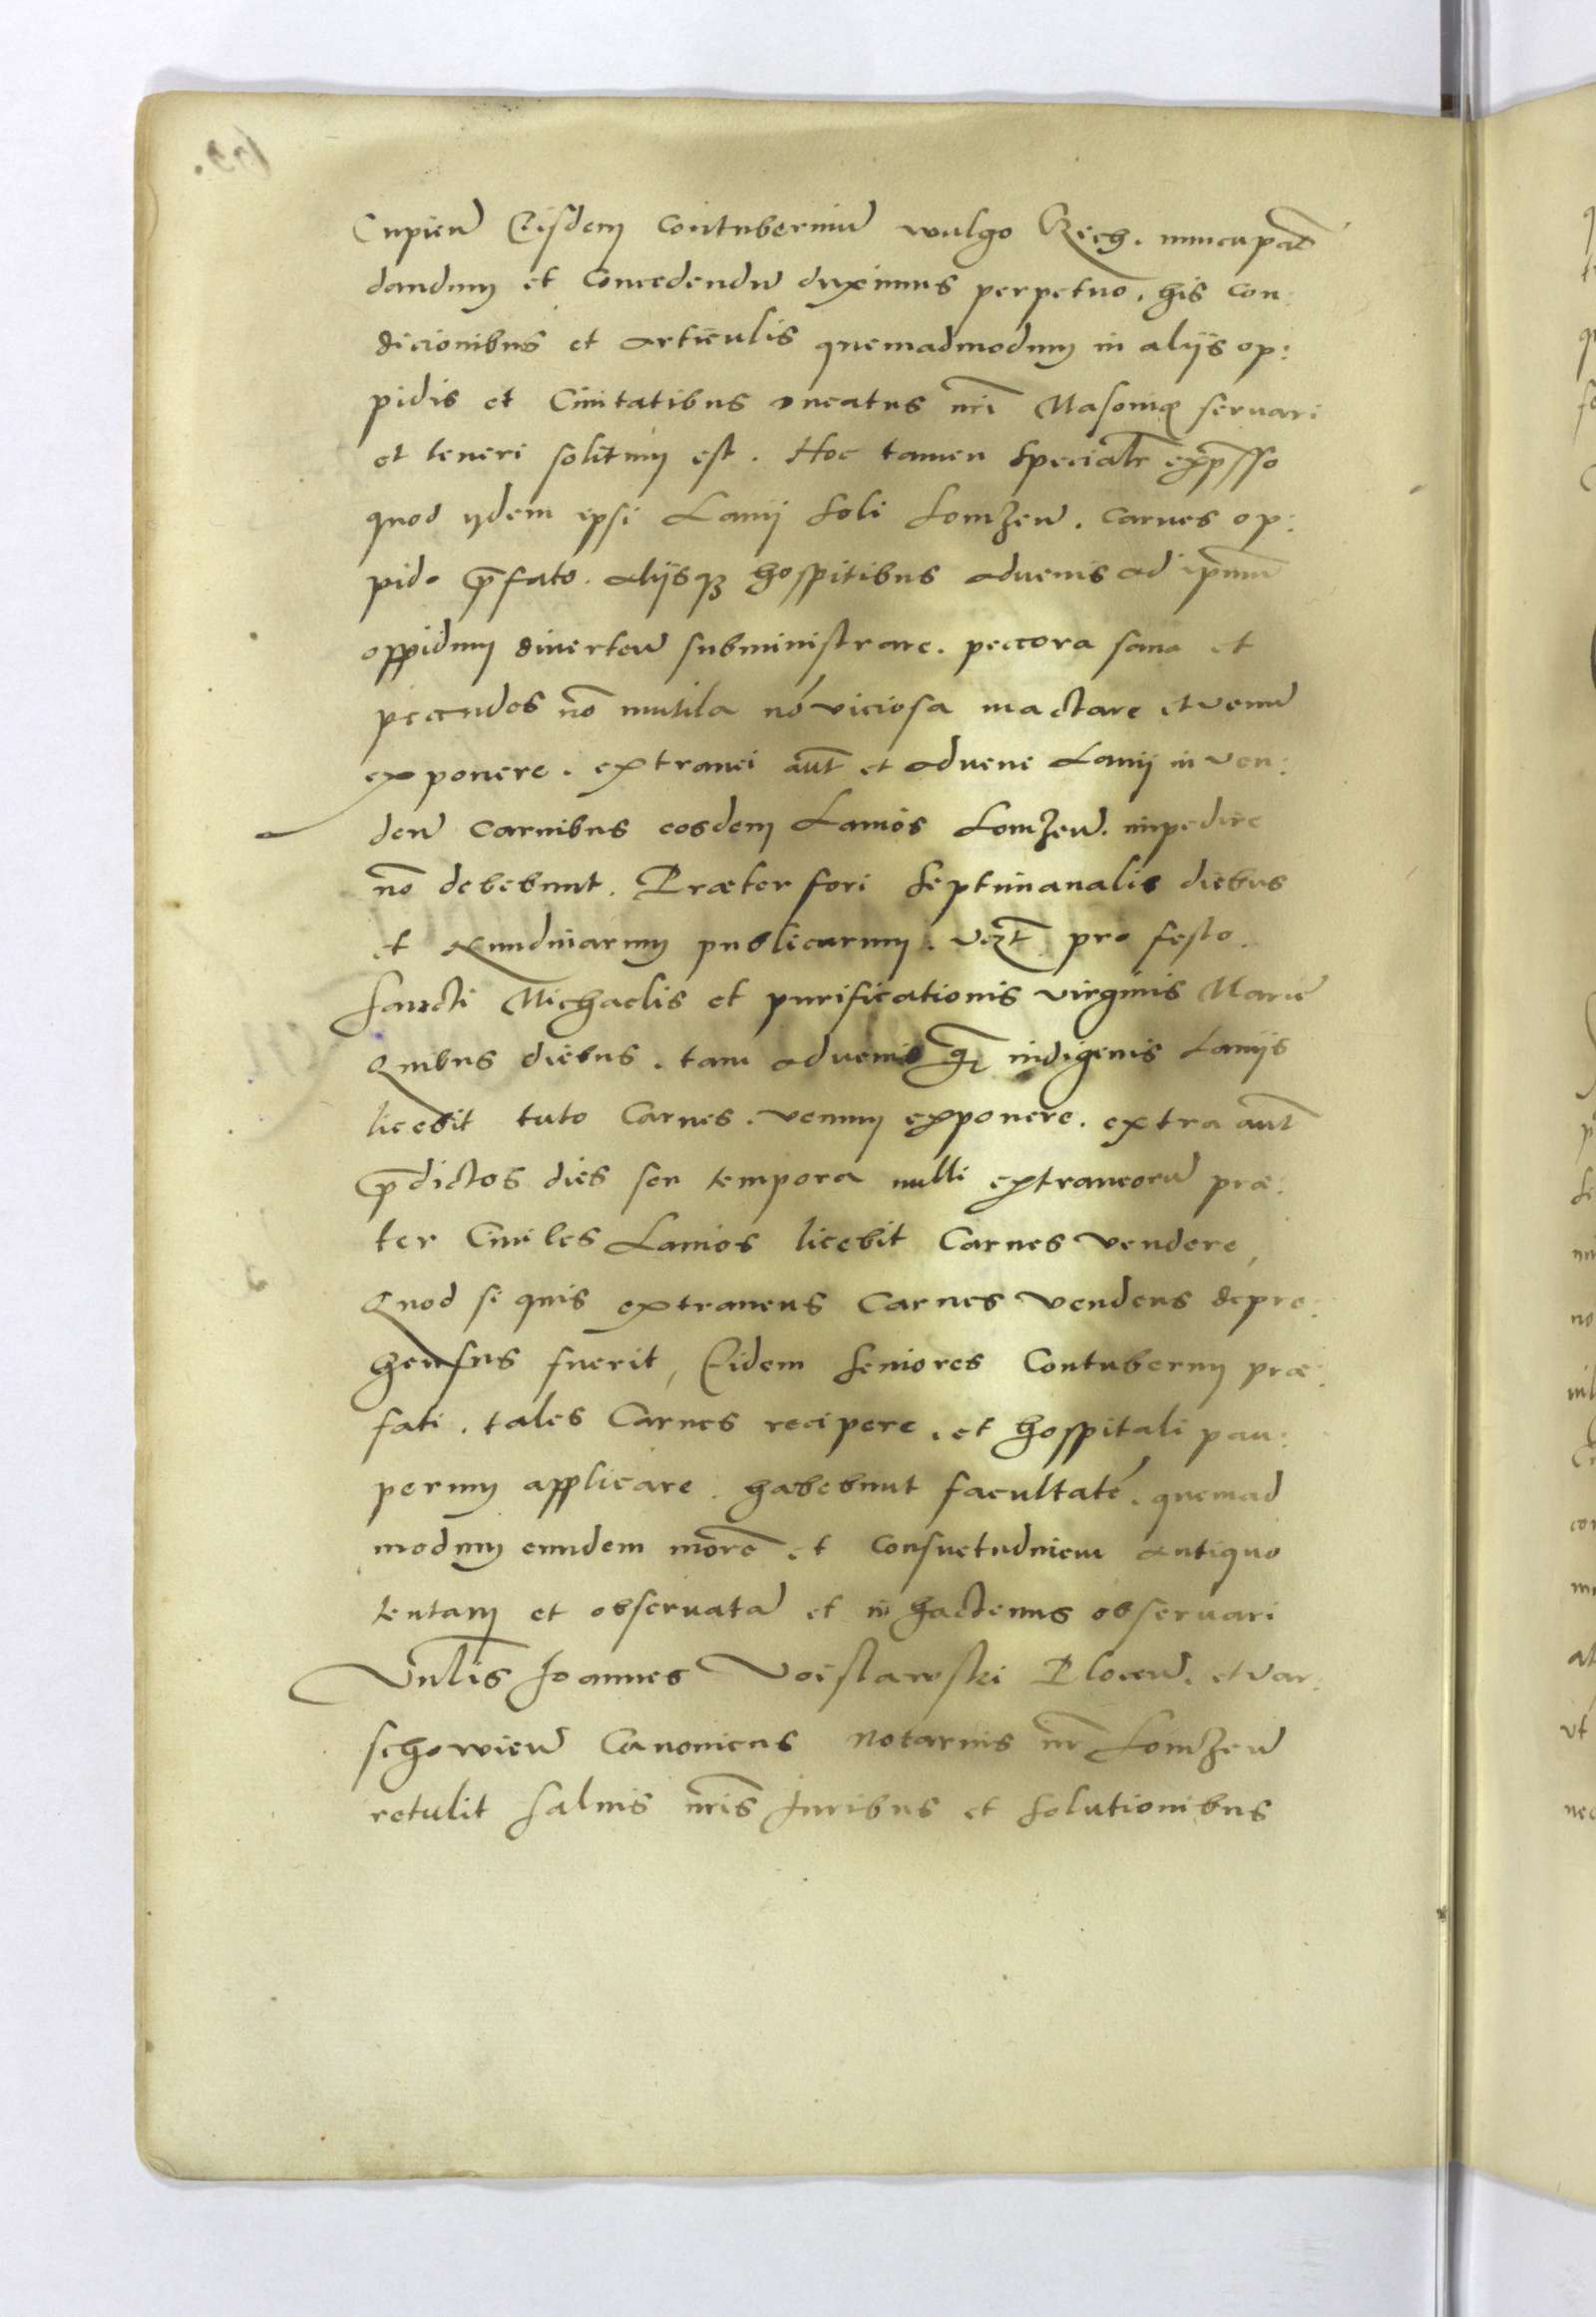 Cupien̄ Eisdem contuberniū wulgo Czech. nuncupat̄
dandum et Concedendū duximus perpetuo. his con:
dicionibus et articulis quemadmodum in alijs op:
pidis et Ciuitatibus ducatus nr̄i Masouiȩ seruari
et teneri solitum est. Hoc tamen specialr̄ exp̄sso
quod ijdem ipsi Lanij soli Lomzen̄. carnes op:
pido p̄fato. alijsqȝ hospitibus aduenis ad ip̄mum
oppidum diuerten̄ subministrare. peccora sana et
peccudes nō mutila nō viciosa mactare et venū
exponere. extranei aut̄ et aduene Lanij in ven:
den̄ carnibus eosdem Lanios Lomzen̄. impedire
nō debebunt. Præter fori septimanalis diebus
et Nundinarum publicarum. vizt̄ pro festo.
sancti Michaelis et purificationis virginis Marie
Quibus diebus. tam aduenis q̄ indigenis Lanijs
licebit tuto Carnes. venum exponere. extra aut̄
p̄dictos dies seu tempora nulli extraneorū præ:
ter Ciuiles Lanios licebit Carnes vendere,
Quod si quis extraneus Carnes vendens depre:
hensus fuerit, Eidem seniores Contubernij præ:
fati. tales Carnes recipere. et hospitali pau:
perum applicare. habebunt facultatē. quemad
modum eundem morē et consuetudinem antiquo
tentam et obseruatā et in hactenus obseruari
Vn̄lis Joannes Voislawski Plocen̄. et var:
schowien̄ Canonicus Notarius nr̄ Lomzen̄
retulit saluis nr̄is Juribus et solutionibus